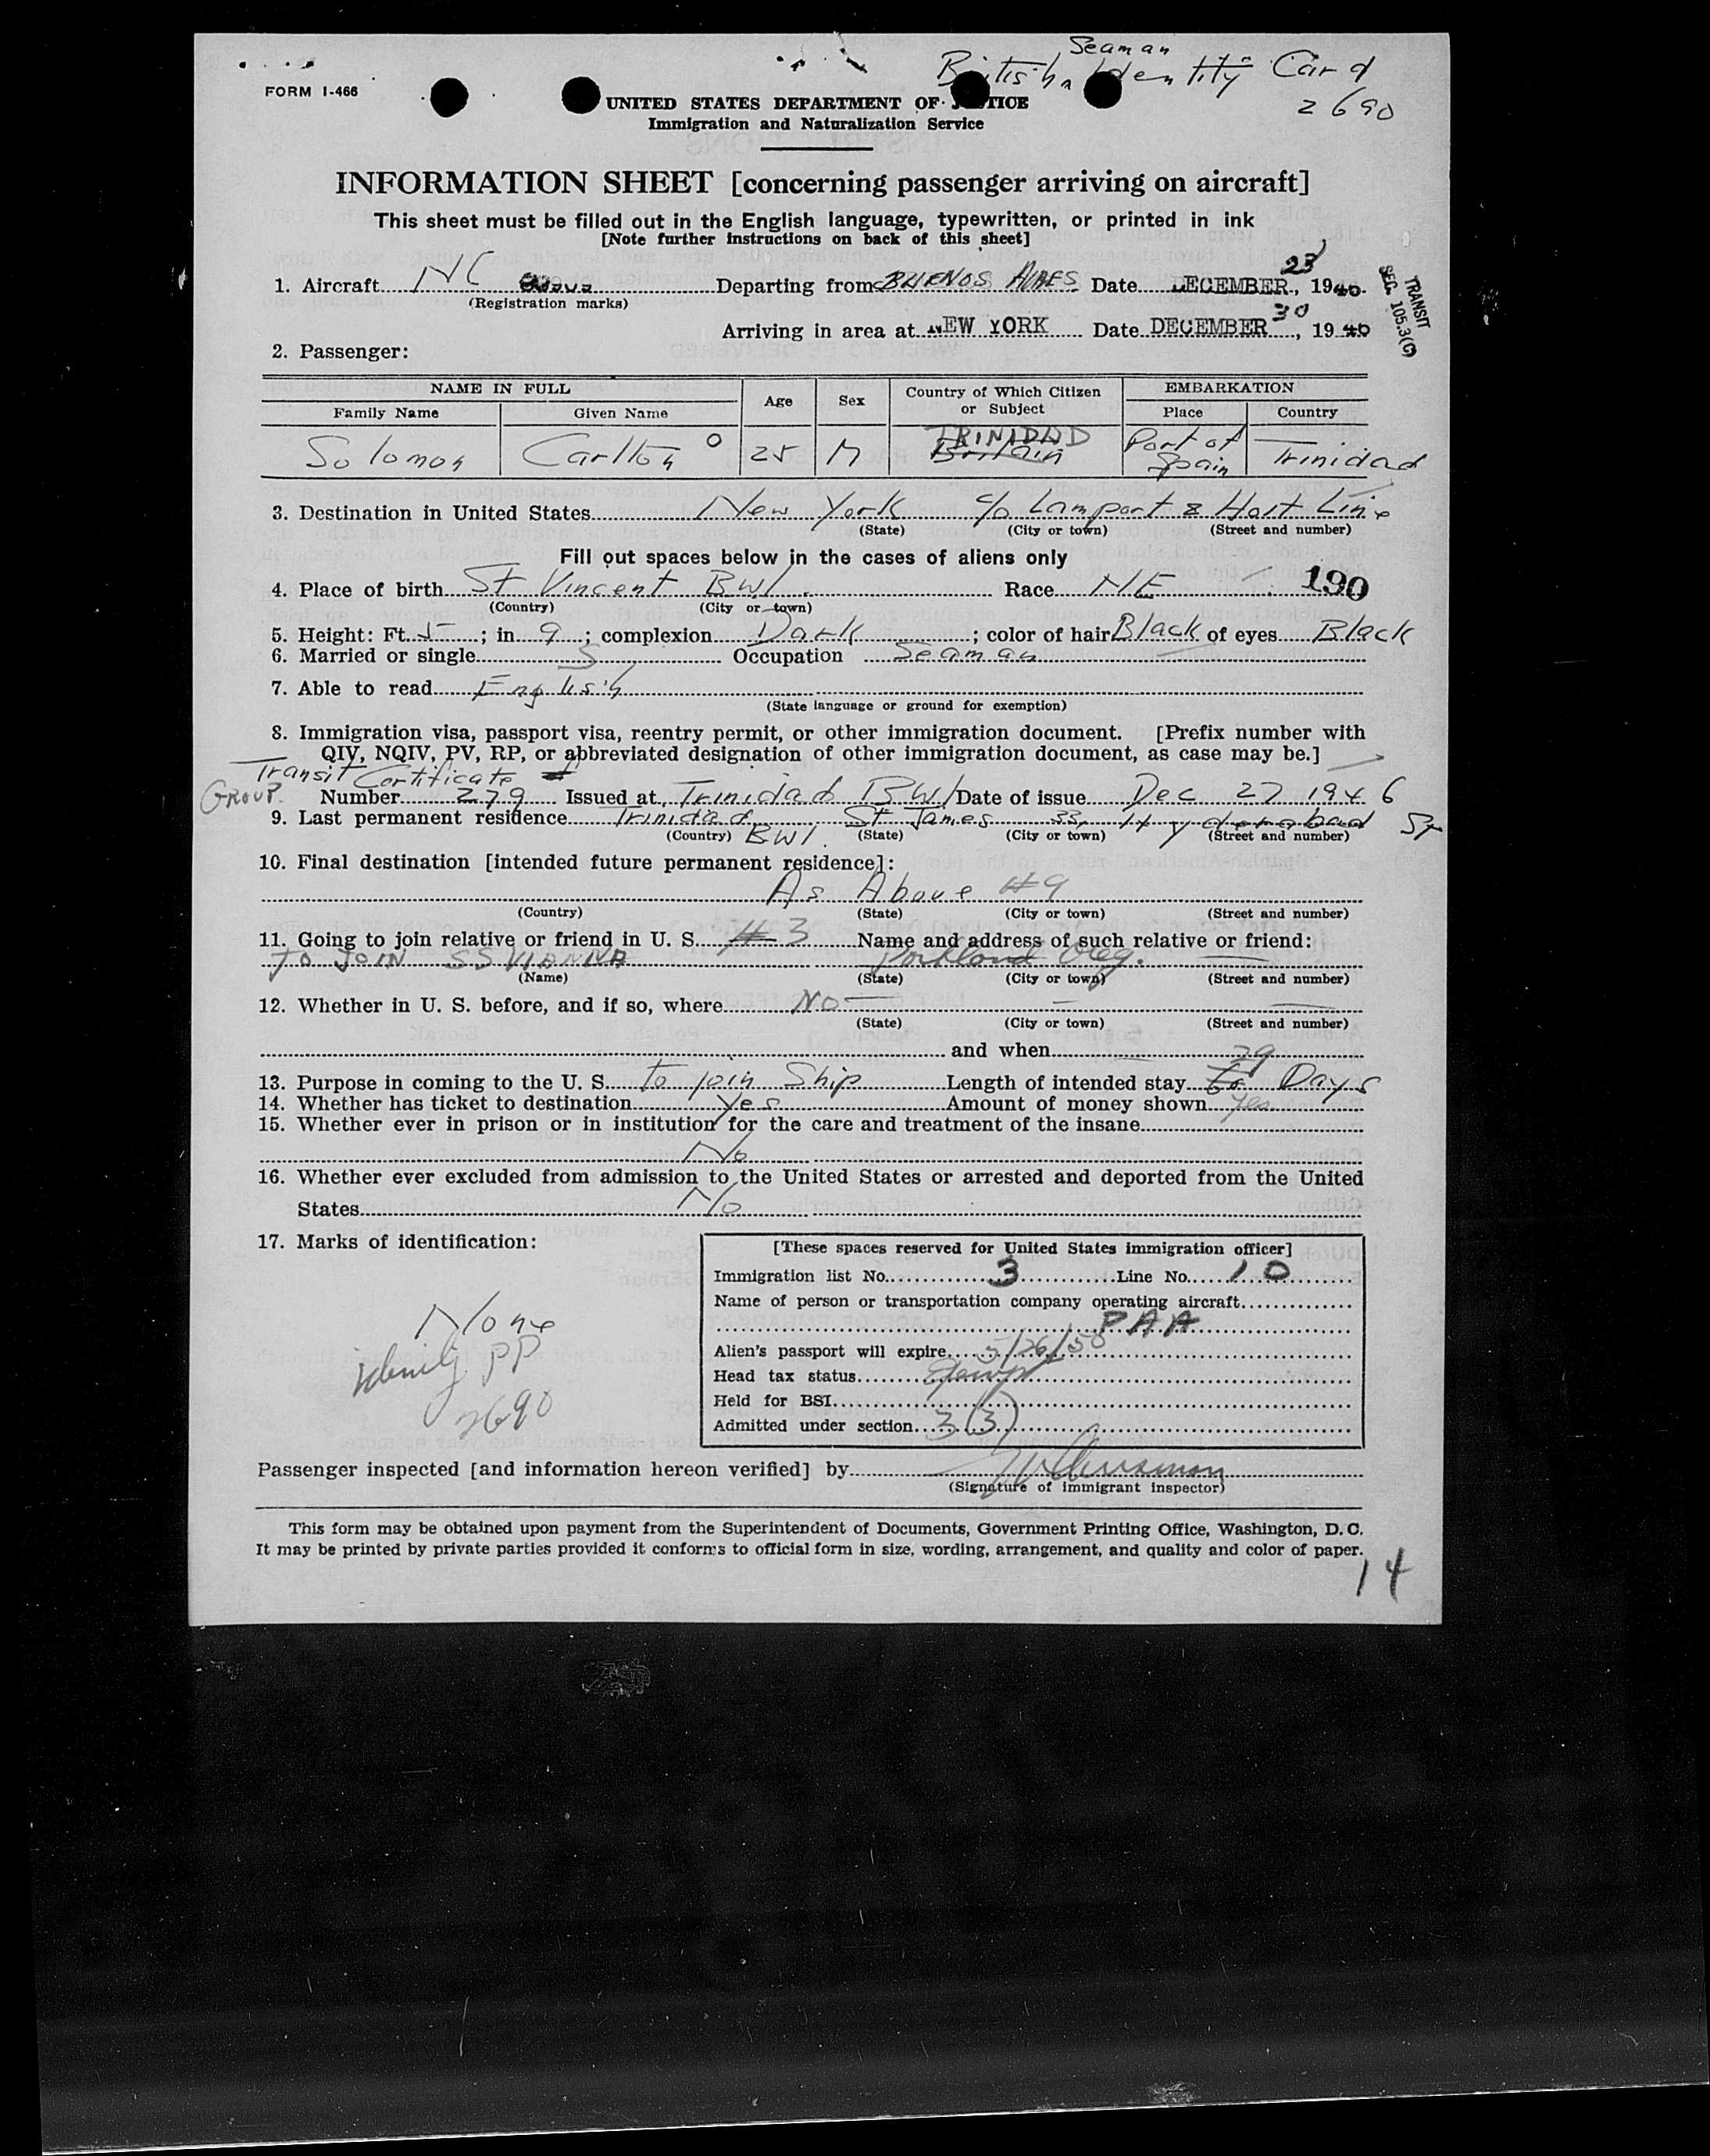 Seaman
British Identity Card
2690
FORM I-466
UNITED STATES DEPARTMENT OF JUSTICE
Immigration and Naturalization Service
INFORMATION SHEET [concerning passenger arriving on aircraft]
This sheet must be filled out in the English language, typewritten, or printed in ink
[Note further instructions on back of this sheet]
1. Aircraft NC Departing from BUENOS AIRES Date DECEMBER 23, 19
(Registration marks)
TRANSIT
SEC. 105.3(C)
Arriving in area at NEW YORK Date DECEMBER 30, 19
2. Passenger:
NAME IN FULL Age Sex Country of Which Citizen or Subject EMBARKATION
Family Name Given Name Place Country
TRINIDAD
Solomon Carlton O 25 M Britain Port of Spain Trinidad
3. Destination in United States New York c/o Lamport & Holt Line
(State) (City or town) (Street and number)
Fill out spaces below in the cases of aliens only
4. Place of birth St Vincent BWI. Race NE 190
(Country) (City or town)
5. Height: Ft. 5; in. 9; complexion Dark; color of hair Black of eyes Black
6. Married or single S Occupation Seaman
7. Able to read English
(State language or ground for exemption)
8. Immigration visa, passport visa, reentry permit, or other immigration document. [Prefix number with
QIV, NQIV, PV, RP, or abbreviated designation of other immigration document, as case may be.]
Transit Certificate #
GROUP. Number 279 Issued at Trinidad BWI Date of issue Dec 27 1946
9. Last permanent residence Trinidad St James 33, Hyderabad St
(Country) BWI. (State) (City or town) (Street and number)
10. Final destination [intended future permanent residence]:
As Above #9
(Country) (State) (City or town) (Street and number)
11. Going to join relative or friend in U. S. #3 Name and address of such relative or friend:
TO JOIN SS VIANNA Portland Oreg.
(Name) (State) (City or town) (Street and number)
12. Whether in U. S. before, and if so, where No
(State) (City or town) (Street and number)
and when
29
13. Purpose in coming to the U. S. To join Ship Length of intended stay Days
14. Whether has ticket to destination Yes Amount of money shown Yes
15. Whether ever in prison or in institution for the care and treatment of the insane
No
16. Whether ever excluded from admission to the United States or arrested and deported from the United
States No
17. Marks of identification:
None
identity PP
2690
[These spaces reserved for United States immigration officer]
Immigration list No. 3 Line No. 10
Name of person or transportation company operating aircraft
PAA
Alien's passport will expire 5/26/50
Head tax status
Held for BSI
Admitted under section 3(3)
Passenger inspected [and information hereon verified] by
(Signature of immigrant inspector)
This form may be obtained upon payment from the Superintendent of Documents, Government Printing Office, Washington, D. C.
It may be printed by private parties provided it conforms to official form in size, wording, arrangement, and quality and color of paper.
14